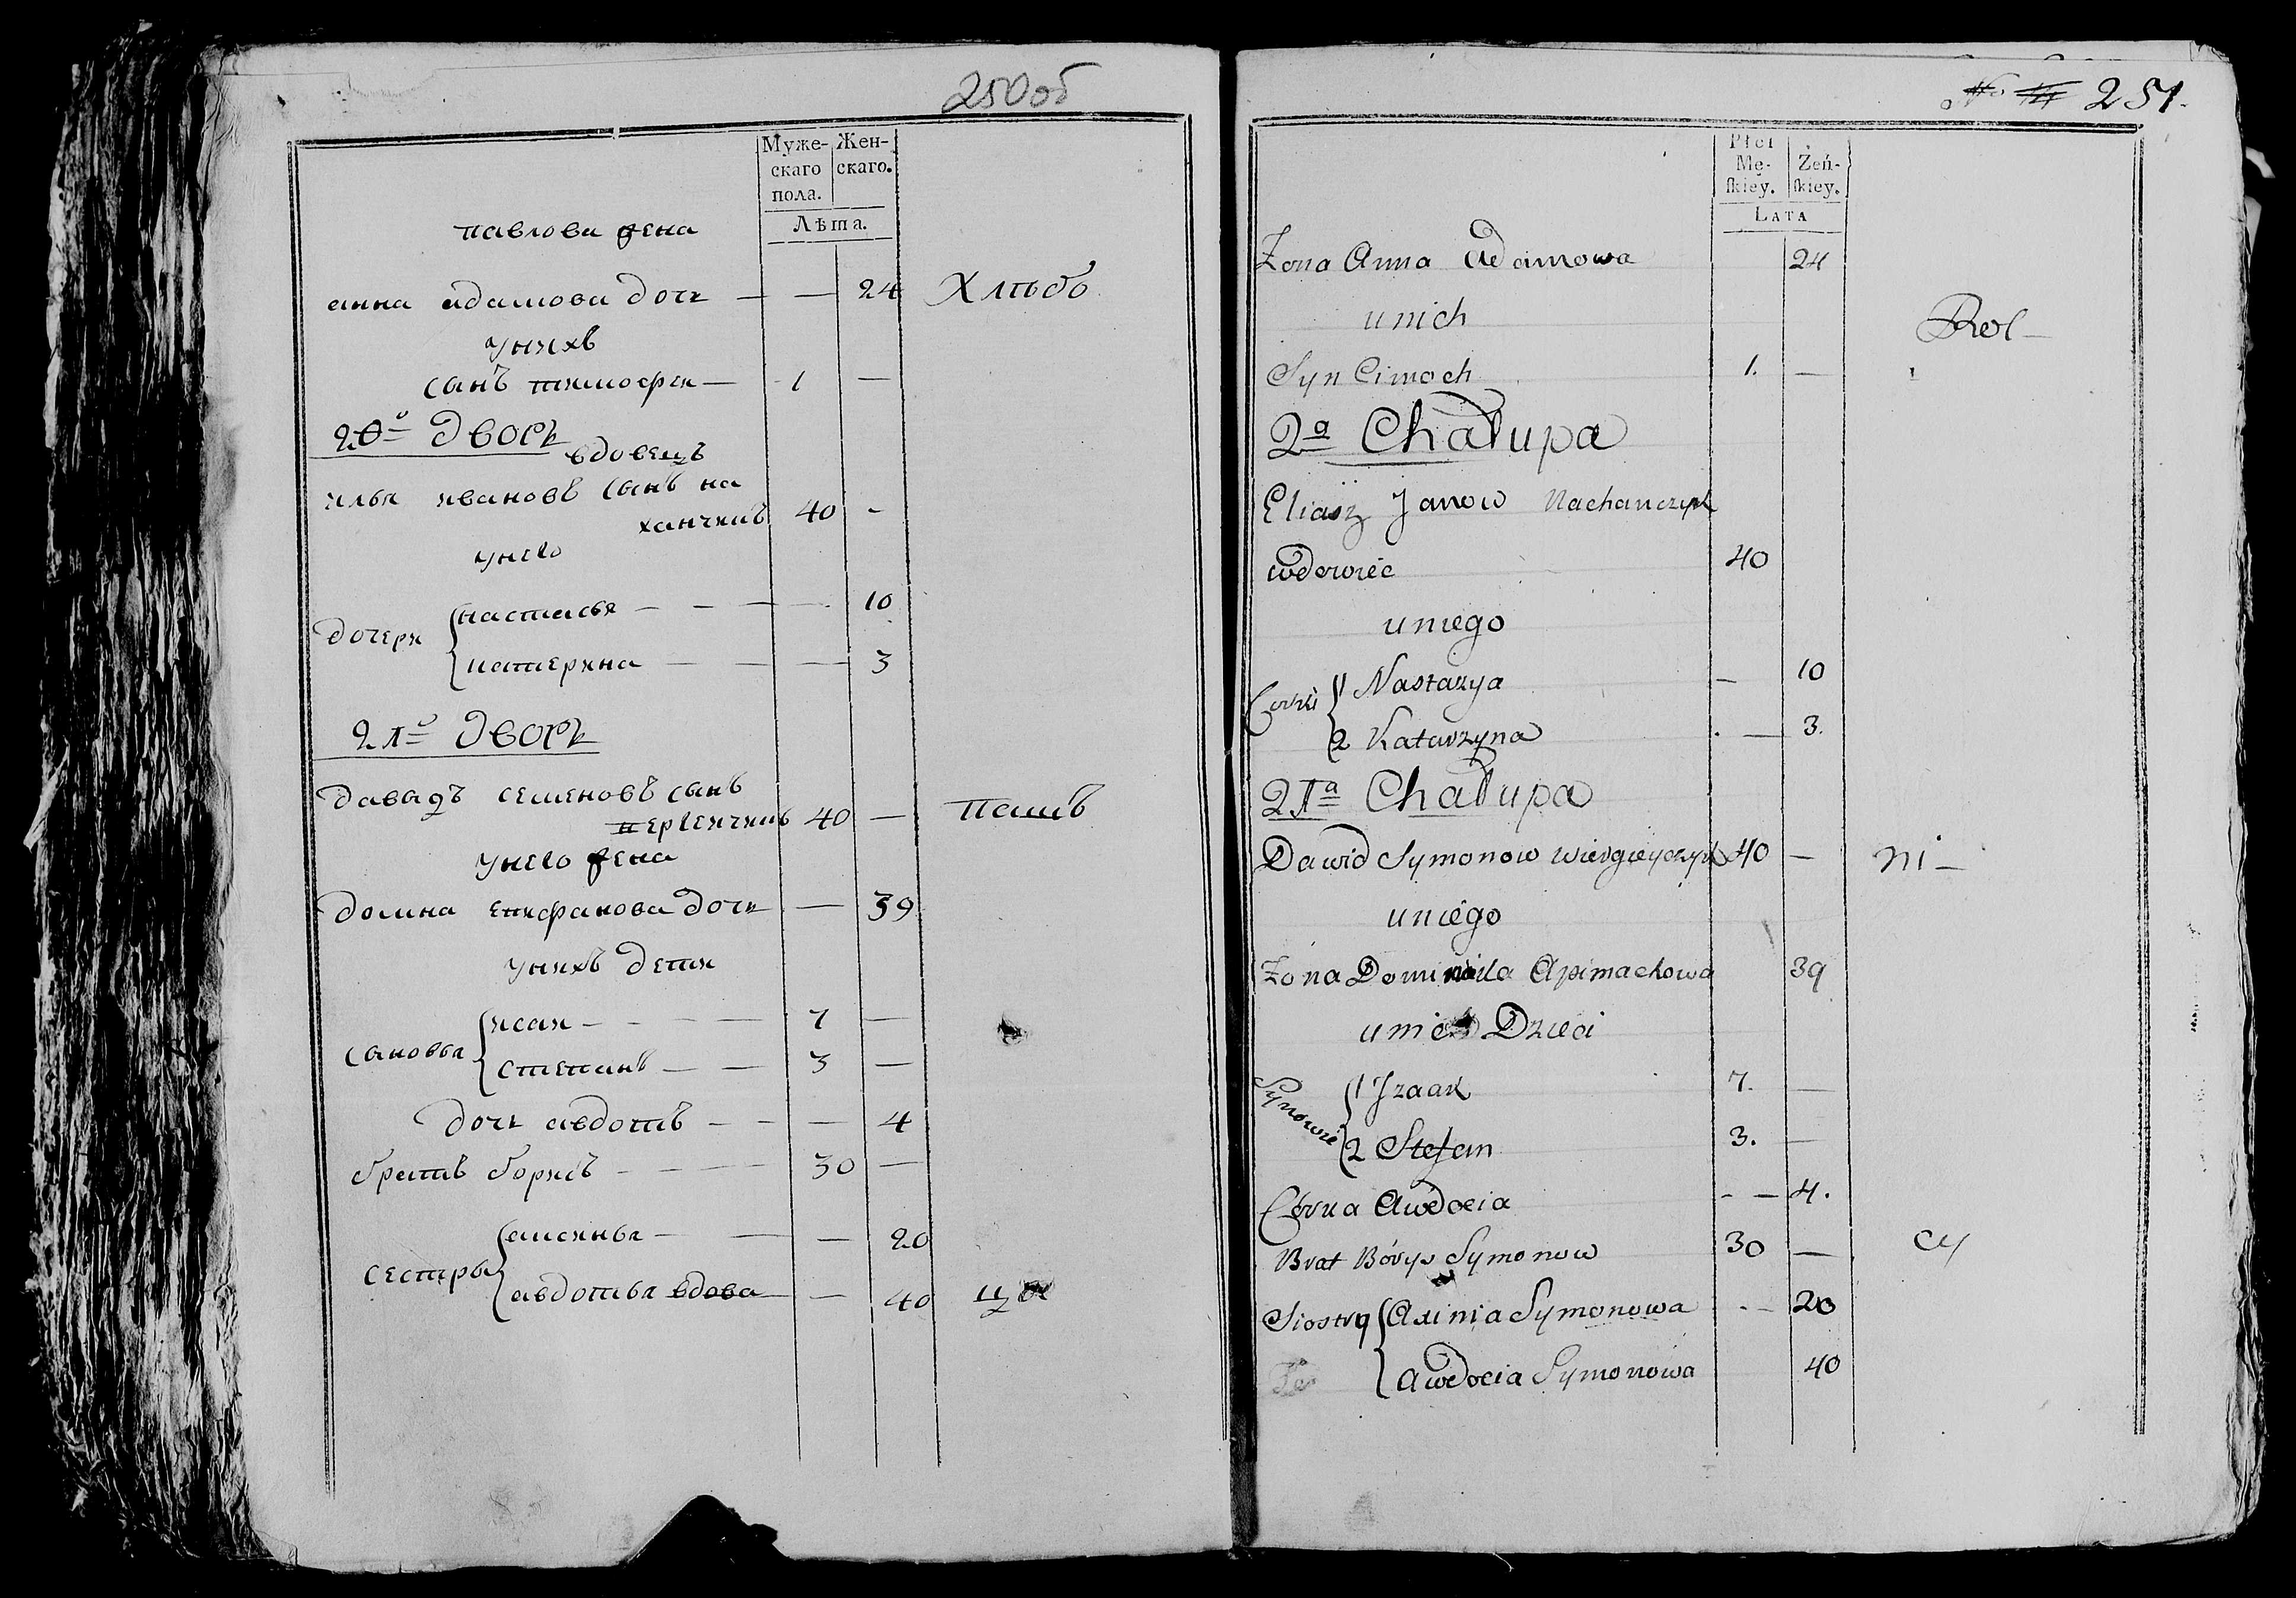 250об
Муже- Жен-
скаго скаго.
пола.
Лѣта.
павлова жена
анна адамова дочь — — 24 Хлѣбо
унихъ
сынъ тимофеи — 1 —
2й дворъ
вдовецъ
илья ивановъ сынъ на
ханчикъ 40 -
унего
дочери настасья — — — 10
катерина — — — 3
дворъ
давыдъ семеновъ сынъ
40 — пашъ
унего жена
домна епифанова дочь — 39
унихъ дети
сыновья исаи — 7 —
степанъ — 3 —
дочь авдотъ — — 4
братъ борисъ — 30 —
сестры аксинья — — 20
авдотья вдова — 40 ца
251.
Płci
Mę- Żeń-
ſkiey. ſkiey.
LATA
Żona Anna Adamowa 24
unich Rol—
Syn Cimoch 1. —
2a Chałupa
Eliasz Janow Nachanczyk
wdowiec 40
uniego
Corki 1 Nastazya — 10
2 Katarzyna — 3.
Chałupa
Dawid Symonow 40 — ni—
uniego
Żona Apimachowa 39
unich Dzieci
Synowie 1 Jzaak 7. —
2 Stefan 3. —
Córka Awdocia - — 4.
Brat Bórys Symonow 30 — cy
Siostry Axinia Symonowa - — 20
Awdocia Symonowa 40